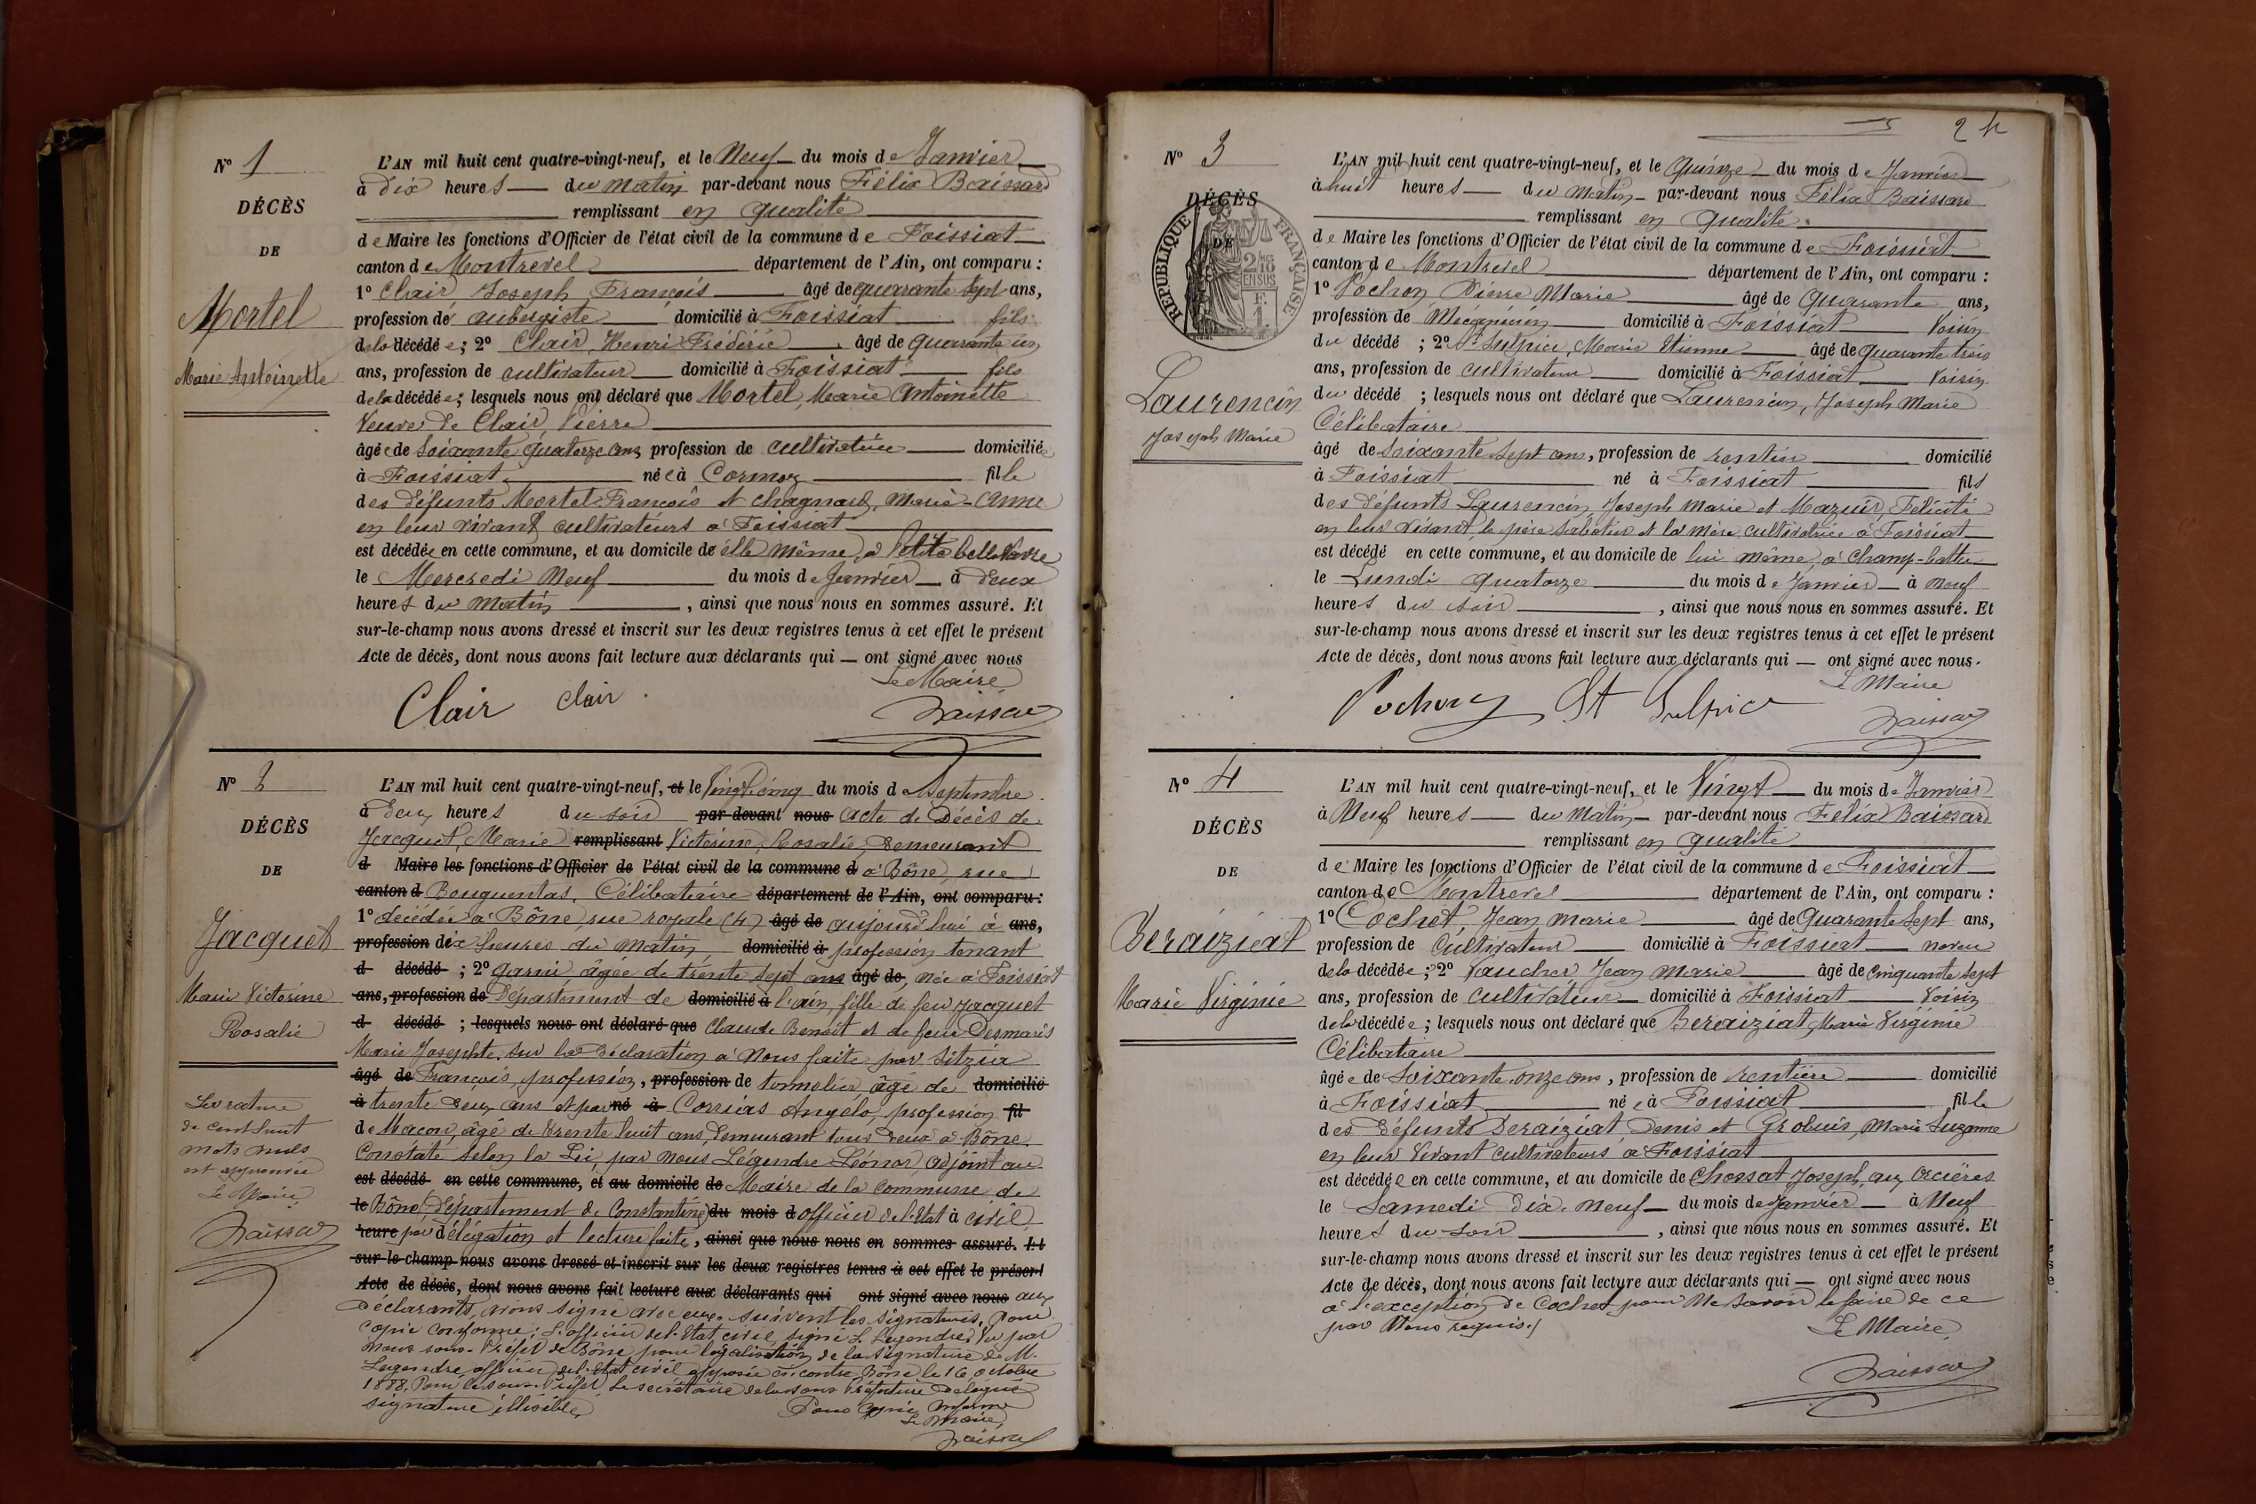 N° 1
DÉCÈS
DE
Mortel
Marie Antoinette
L'AN mil huit cent quatre-vingt-neuf, et le Neuf du mois de Janvier
à Dix heures du matin par-devant nous Félix Baissard
remplissant en qualité
de Maire les fonctions d'Officier de l'état civil de la commune de Foissiat
canton de Montrevel département de l'Ain, ont comparu :
1° Clair Joseph François âgé de quarante sept ans,
profession de aubergiste domicilié à Foissiat fils
de la décédée ; 2° Clair, Henri Frédéric âgé de quarante un
ans, profession de cultivateur domicilié à Foissiat fils
de la décédée ; lesquels nous ont déclaré que Mortel, Marie Antoinette
Veuve de Clair, Pierre
âgée de Soixante quatorze ans profession de cultivatrice domiciliée
à Foissiat née à Cormoz fille
des défunts Mortel François et Chagnard, Marie-Anne
en leur vivant cultivateurs à Foissiat
est décédée en cette commune, et au domicile de elle même, à Petite bellevavre
le Mercredi Neuf du mois de Janvier à Deux
heures du Matin , ainsi que nous nous en sommes assuré. Et
sur-le-champ nous avons dressé et inscrit sur les deux registres tenus à cet effet le présent
Acte de décès, dont nous avons fait lecture aux déclarants qui — ont signé avec nous
Le Maire
Clair clair
Baissard
N° 2
DÉCÈS
DE
Jacquet
Marie Victorine
Rosalie
La rature
de cent huit
mots nuls
est approuvée
Le Maire
Baissard
L'AN mil huit cent quatre-vingt-neuf, et le Vingt cinq du mois de Septembre
à Deux heures du soir par-devant nous acte de Décès de
Jacquet, Marie remplissant Victorine, Rosalie, Demeurant
d Maire les fonctions d'Officier de l'état civil de la commune d à Bône, rue
canton d Bouguentas, Célibataire département de l'Ain, ont comparu :
1° décédée à Bône, rue royale (4) âgé de aujourd'hui à ans,
profession de dix heures du matin domicilié à profession tenant
d décédé ; 2° garni âgée de trente sept ans âgé de, née à Foissiat
ans, profession de Département de domicilié à l'ain, fille de feu Jacquet
d décédé ; lesquels nous ont déclaré que Claude Benoît et de feue Desmaris
Marie Josephte, sur la Déclaration à Nous faite par Sitzia
âgé de François, profession, profession de tonnelier âgé de domicilié
à trente deux ans et par né à Corrias Angelo, profession fil
de Macon, âgé de trente huit ans, Demeurant tous deux à Bône
Constaté selon la Loi, par Nous Légendre Léonor, adjoint au
est décédé en cette commune, et au domicile de Maire de la commune de
le Bône (Département de Constantine) du mois d officier de l'Etat à civil
heure par délégation et lecture faite, ainsi que nous nous en sommes assuré. Et
sur-le-champ nous avons dressé et inscrit sur les deux registres tenus à cet effet le présent
Acte de décès, dont nous avons fait lecture aux déclarants qui ont signé avec nous aux
Déclarants, avons signé avec eux. Suivent les signatures. Pour
copie conforme ; L'officier de l'état civil, signé L. Legendre, Vu par
Nous sous-Préfet de Bône pour légalisation de la signature de M.
Legendre, officier de l'état civil apposée ci-contre Bône le 16 octobre
1888, Pour le sous-Préfet, Le secrétaire de la sous Préfecture Délégué
signature illisible,
Pour Copie conforme
Le Maire,
Baissard
24
N° 3
DÉCÈS
DE
RÉPUBLIQUE FRANÇAISE
2/10 EN SUS
F.
1
Laurencin
Joseph Marie
L'AN mil huit cent quatre-vingt-neuf, et le Quinze du mois de Janvier
à huit heures du Matin par-devant nous Félix Baissard
remplissant en qualité
de Maire les fonctions d'Officier de l'état civil de la commune de Foissiat
canton de Montrevel département de l'Ain, ont comparu :
1° Pochon Pierre Marie âgé de Quarante ans,
profession de Mécanicien domicilié à Foissiat Voisin
du décédé ; 2° St Sulpice, Marie Etienne âgé de quarante trois
ans, profession de cultivateur domicilié à Foissiat Voisin
du décédé ; lesquels nous ont déclaré que Laurencin, Joseph Marie
Célibataire
âgé de Soixante sept ans, profession de rentier domicilié
à Foissiat né à Foissiat fils
des défunts Laurencin Joseph Marie et Mazuir, Félicité
en leur vivant, le père sabotier et la mère cultivatrice à Foissiat
est décédé en cette commune, et au domicile de lui même, à Champ-battu
le Lundi quatorze du mois de Janvier à neuf
heures du soir , ainsi que nous nous en sommes assuré. Et
sur-le-champ nous avons dressé et inscrit sur les deux registres tenus à cet effet le présent
Acte de décès, dont nous avons fait lecture aux déclarants qui — ont signé avec nous.
Le Maire
Pochon St Sulpice
Baissard
N° 4
DÉCÈS
DE
Beraiziat
Marie Virginie
L'AN mil huit cent quatre-vingt-neuf, et le Vingt du mois de Janvier
à Neuf heures du Matin par-devant nous Félix Baissard
remplissant en qualité
de Maire les fonctions d'Officier de l'état civil de la commune de Foissiat
canton de Montrevel département de l'Ain, ont comparu :
1° Cochet, Jean Marie âgé de Quarante Sept ans,
profession de Cultivateur domicilié à Foissiat neveu
de la décédée ; 2° Vaucher Jean Marie âgé de cinquante sept
ans, profession de cultivateur domicilié à Foissiat Voisin
de la décédée ; lesquels nous ont déclaré que Beraiziat, Marie Virginie
Célibataire
âgée de Soixante onze ans, profession de rentière domicilié
à Foissiat née à Foissiat fille
des défunts Beraiziat Denis et Grobuis, Marie Suzanne
en leur Vivant cultivateurs à Foissiat
est décédée en cette commune, et au domicile de Chossat Joseph, aux Orcières
le Samedi Dix-Neuf du mois de Janvier à Neuf
heures du soir , ainsi que nous nous en sommes assuré. Et
sur-le-champ nous avons dressé et inscrit sur les deux registres tenus à cet effet le présent
Acte de décès, dont nous avons fait lecture aux déclarants qui — ont signé avec nous
à l'exception de Cochet pour Ne savoir le faire de ce
par Nous requis./
Le Maire
Baissard